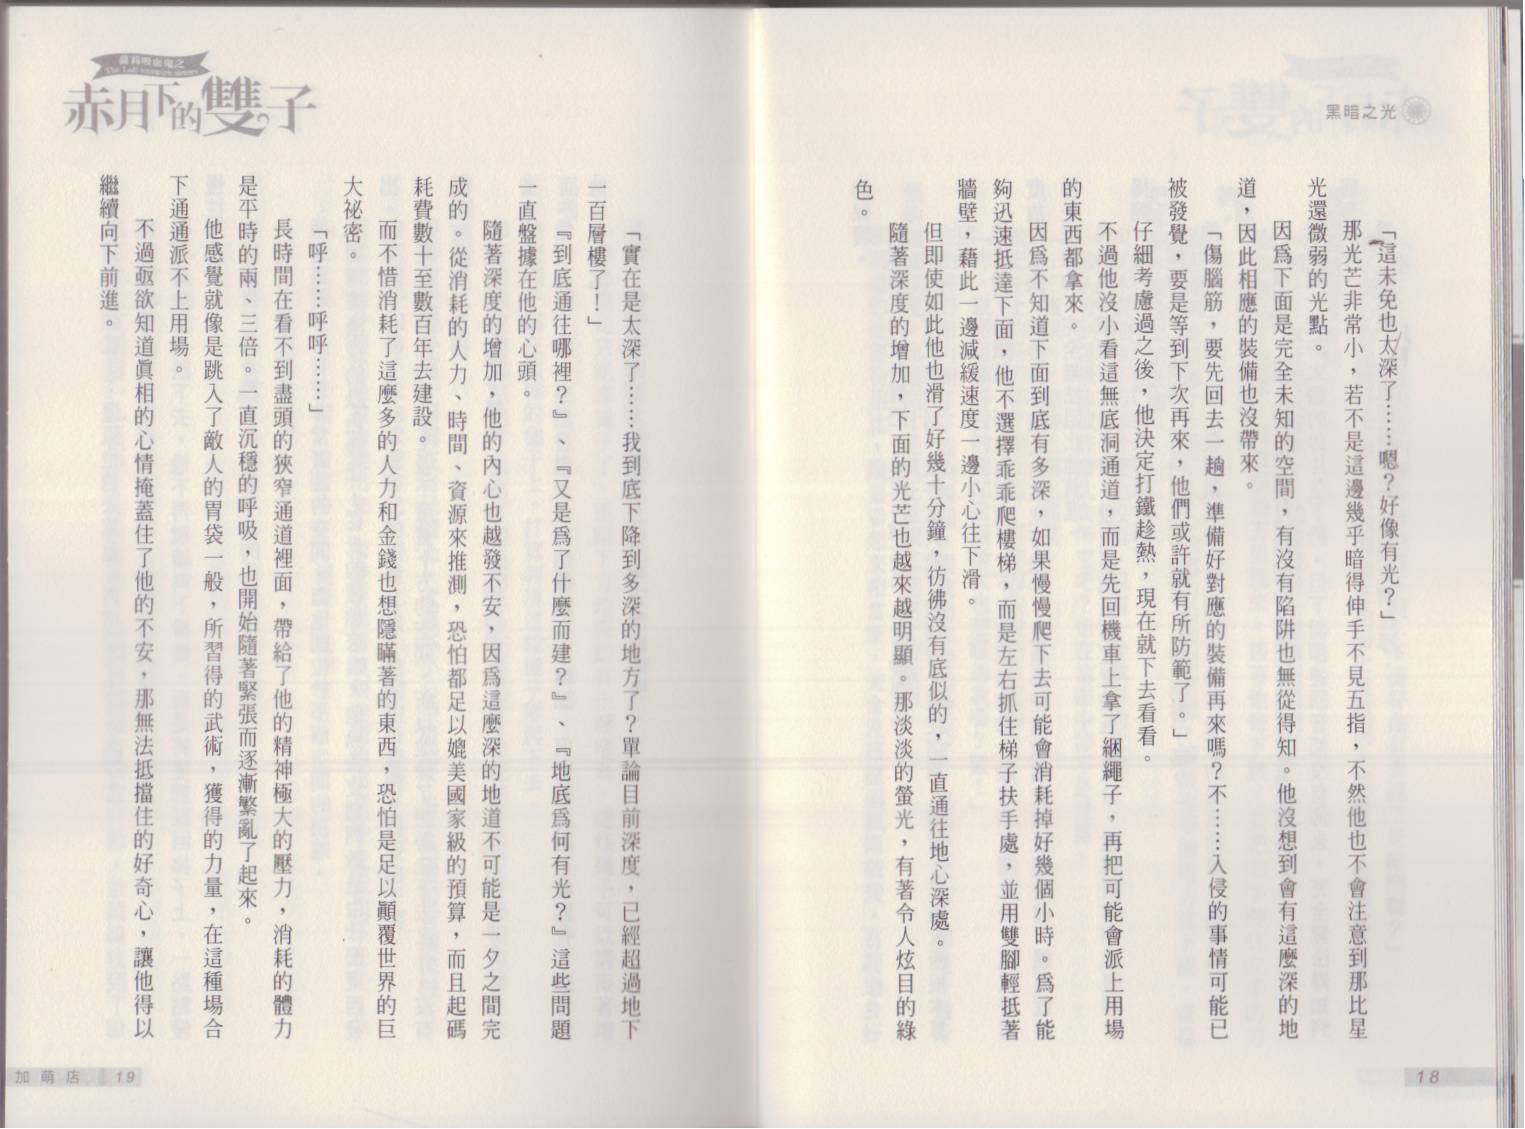 黑暗之光
「這未免也太深了……嗯？好像有光？」
那光芒非常小，若不是這邊幾乎暗得伸手不見五指，不然他也不會注意到那比星
光還微弱的光點。
因爲下面是完全未知的空間，有沒有陷阱也無從得知。他沒想到會有這麼深的地
道，因此相應的裝備也沒帶來。
「傷腦筋，要先回去一趟，準備好對應的裝備再來嗎？不……入侵的事情可能已
被發覺，要是等到下次再來，他們或許就有所防範了。」
仔細考慮過之後，他決定打鐵趁熱，現在就下去看看。
不過他沒小看這無底洞通道，而是先回機車上拿了綑繩子，再把可能會派上用場
的東西都拿來。
因爲不知道下面到底有多深，如果慢慢爬下去可能會消耗掉好幾個小時。爲了能
夠迅速抵達下面，他不選擇乖乖爬樓梯，而是左右抓住梯子扶手處，並用雙腳輕抵著
牆壁，藉此一邊減緩速度一邊小心往下滑。
但即使如此他也滑了好幾十分鐘，彷彿沒有底似的，一直通往地心深處。
隨著深度的增加，下面的光芒也越來越明顯。那淡淡的螢光，有著令人炫目的綠
色。
18
蘿莉吸血鬼之
The Loli vampire sisters
赤月下的雙子
「實在是太深了……我到底下降到多深的地方了？單論目前深度，已經超過地下
一百層樓了！」
『到底通往哪裡？』、『又是爲了什麼而建？』、『地底爲何有光？』這些問題
一直盤據在他的心頭。
隨著深度的增加，他的內心也越發不安，因爲這麼深的地道不可能是一夕之間完
成的。從消耗的人力、時間、資源來推測，恐怕都足以媲美國家級的預算，而且起碼
耗費數十至數百年去建設。
而不惜消耗了這麼多的人力和金錢也想隱瞞著的東西，恐怕是足以顚覆世界的巨
大祕密。
「呼……呼呼……」
長時間在看不到盡頭的狹窄通道裡面，帶給了他的精神極大的壓力，消耗的體力
是平時的兩、三倍。一直沉穩的呼吸，也開始隨著緊張而逐漸繁亂了起來。
他感覺就像是跳入了敵人的胃袋一般，所習得的武術，獲得的力量，在這種場合
下通通派不上用場。
不過亟欲知道眞相的心情掩蓋住了他的不安，那無法抵擋住的好奇心，讓他得以
繼續向下前進。
加萌店 19